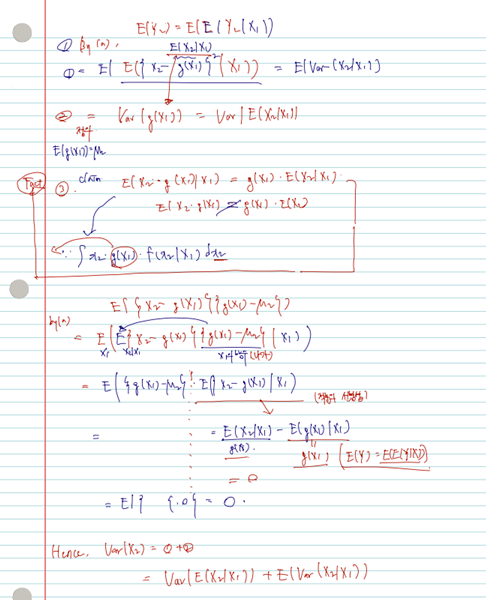 E(Y₂) = E(E(Y₂|X₁))
① By (a),
E(X₂|X₁)
① = E( E({X₂ - g(X₁)}² | X₁)) = E(Var(X₂|X₁))
② = Var(g(X₁)) = Var(E(X₂|X₁))
E(g(X₁))=μ₂
③ claim E(X₂·g(X₁)|X₁) = g(X₁)·E(X₂|X₁)
E(X₂·g(X₁)) ≠ g(X₁)·E(X₂)
∵ ∫ x₂·g(X₁)·f(x₂|X₁) dx₂
E({X₂ - g(X₁)}{g(X₁) - μ₂})
by(a)
= E(E{X₂ - g(X₁)}{g(X₁) - μ₂} | X₁)
X₁ X₂|X₁
= E({g(X₁) - μ₂} · E(X₂ - g(X₁) | X₁)
= = E(X₂|X₁) - E(g(X₁)|X₁)
g(X₁). g(X₁) (E(Y) = E(E(Y|X)))
= 0
= E({ }·0) = 0.
Hence, Var(X₂) = ①+②
= Var(E(X₂|X₁)) + E(Var(X₂|X₁))